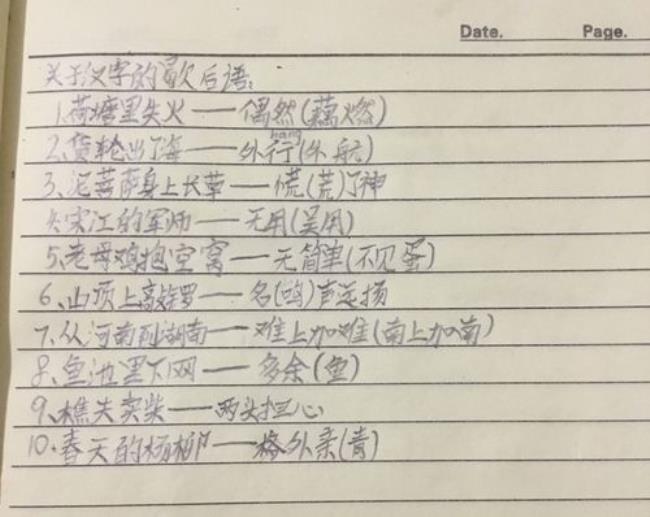 Date. Page.
关于汉字的歇后语:
1.荷塘里失火——偶然(藕燃)
háng
2、货轮出了海——外行(外航)
3、泥菩萨身上长草——慌(荒)了神
4、宋江的军师——无用(吴用)
5、老母鸡抱空窝——无简单(不见蛋)
6、山顶上敲锣——名(鸣)声远扬
7、从河南到湖南——难上加难(南上加南)
8、鱼池里下网——多余(鱼)
9、樵夫卖柴——两头担心
10.春天的杨柳——格外亲(青)